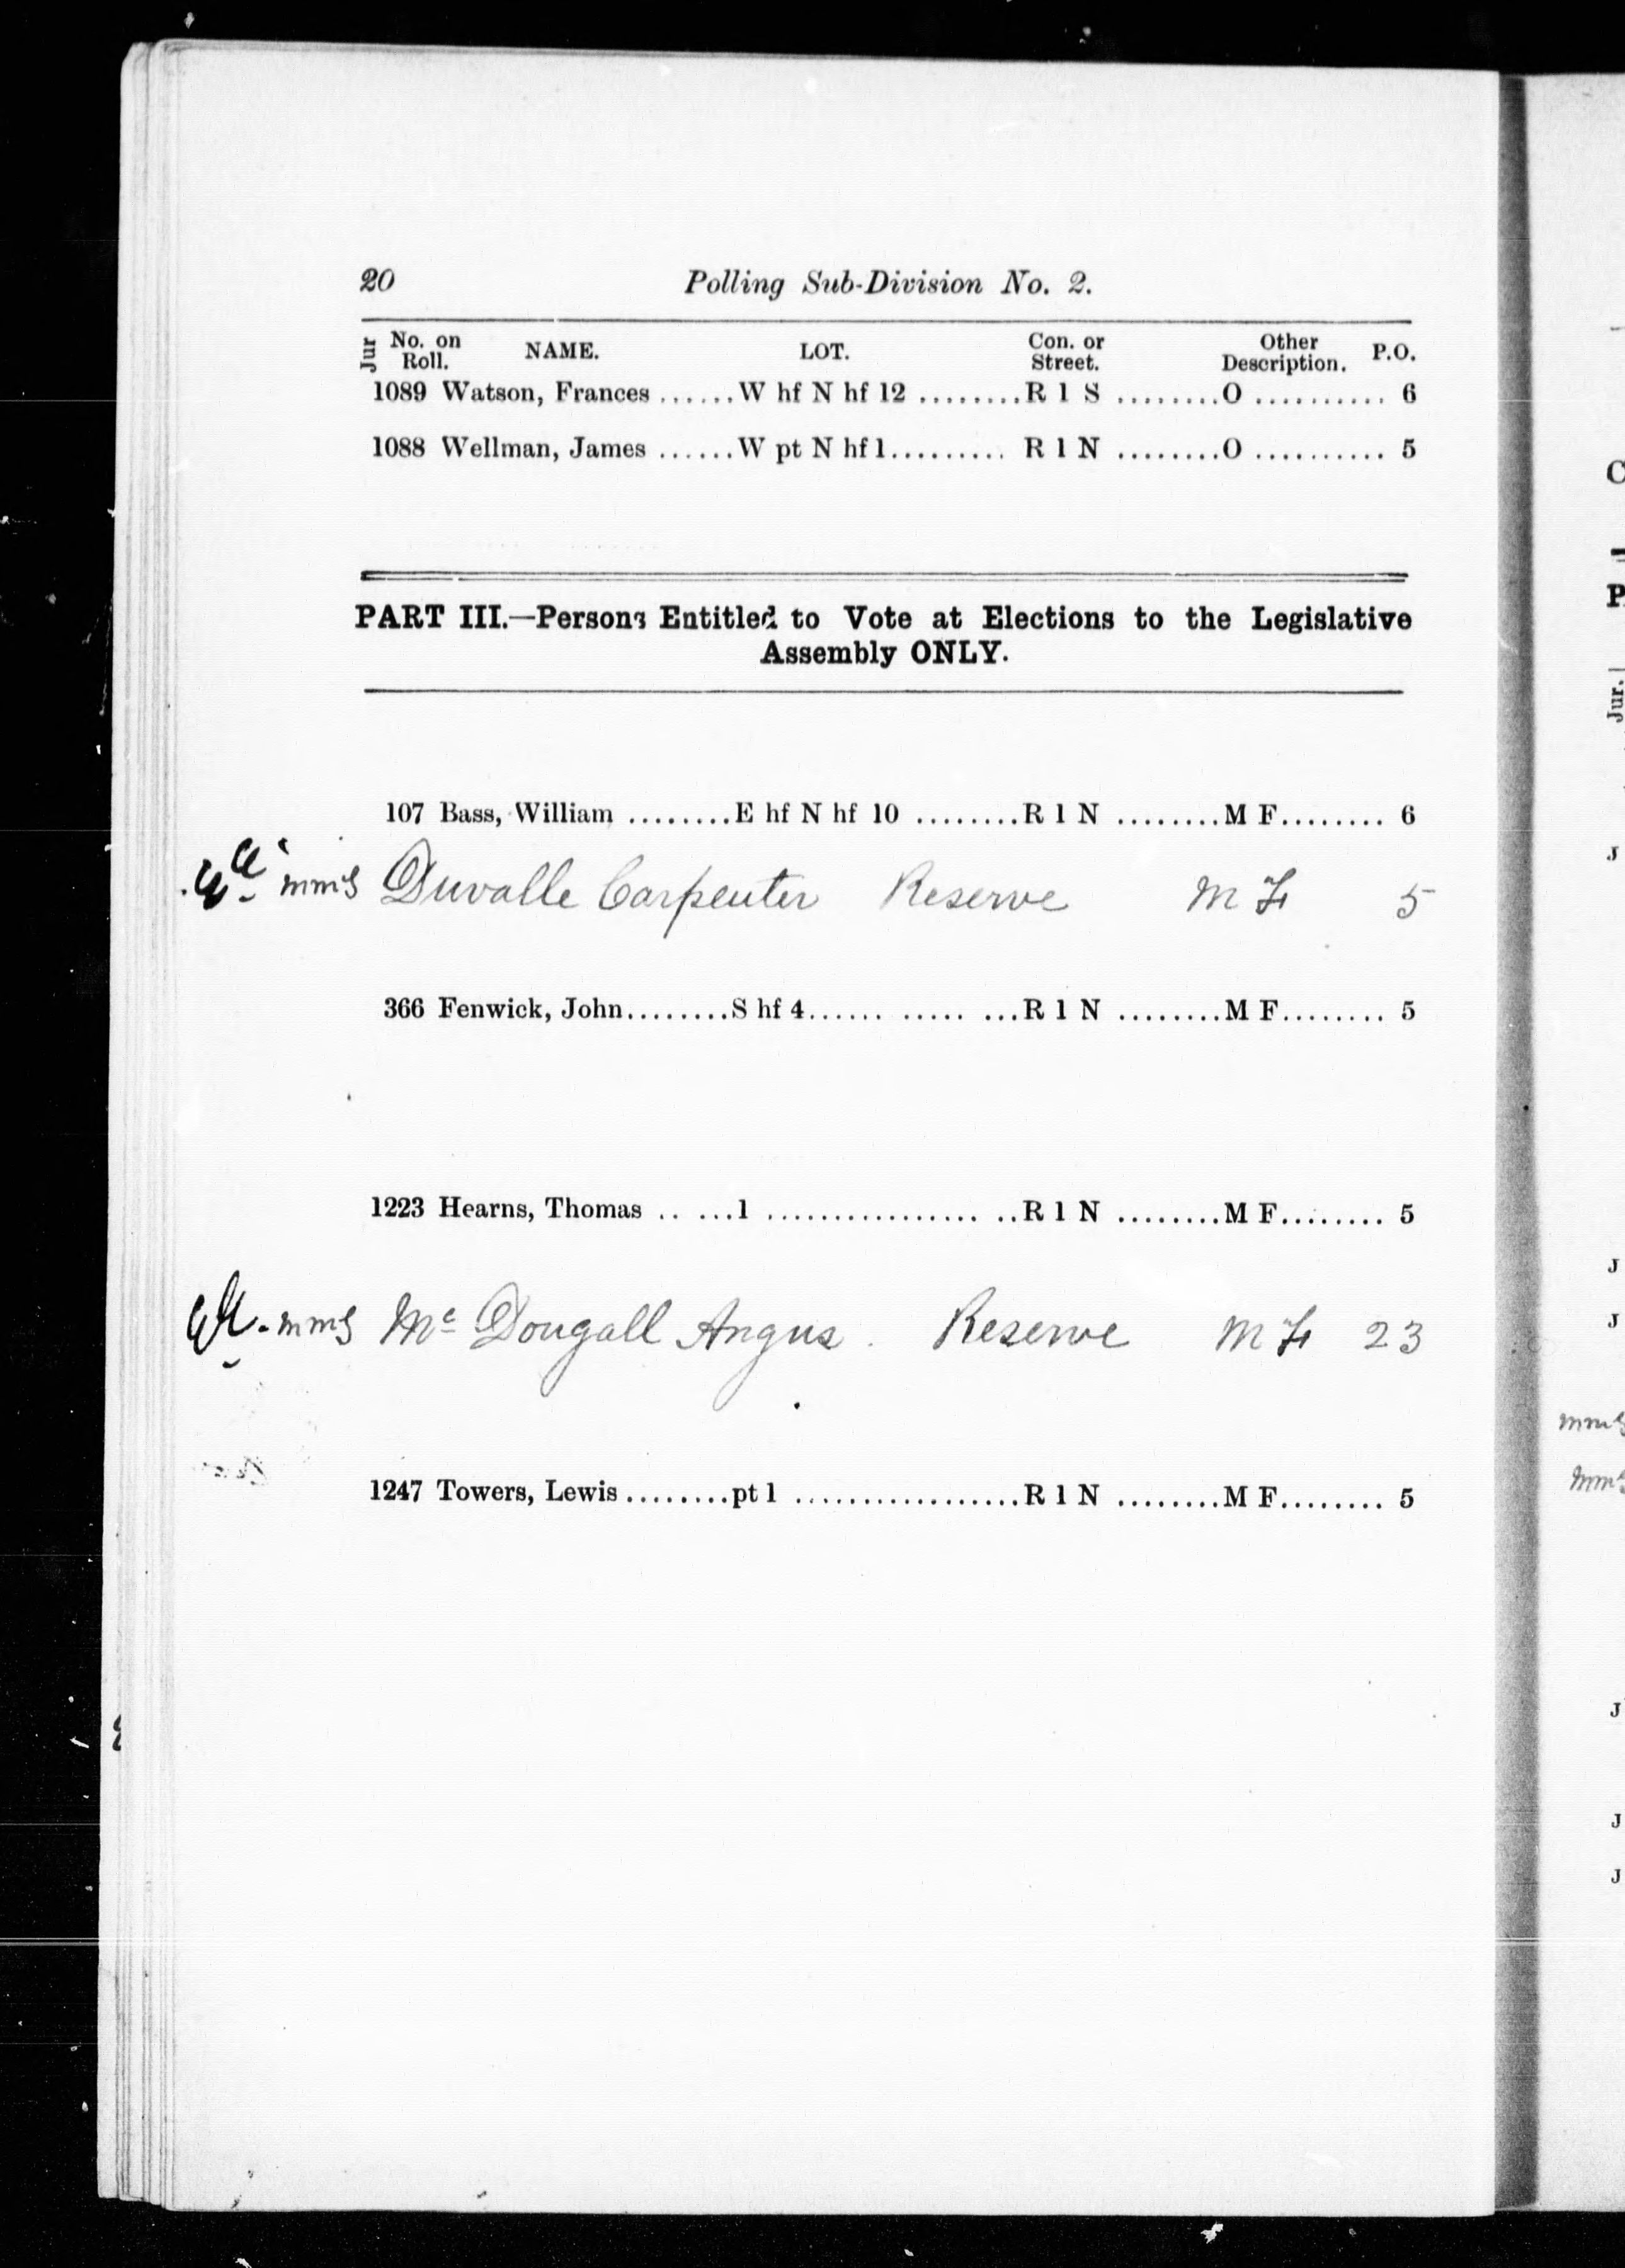 20 Polling Sub-Division No. 2.
Jur No. on Roll. NAME. LOT. Con. or Street. Other Description. P.O.
1089 Watson, Frances ......W hf N hf 12 ........R 1 S ........O .......... 6
1088 Wellman, James ......W pt N hf 1......... R 1 N ........O .......... 5
PART III.—Persons Entitled to Vote at Elections to the Legislative
Assembly ONLY.
107 Bass, William ........E hf N hf 10 ........R 1 N ........M F........ 6
mms Duvalle Carpenter Reserve M F 5
366 Fenwick, John........S hf 4...... ..... ...R 1 N ........M F........ 5
1223 Hearns, Thomas .. ...1 ................ ..R 1 N ........M F........ 5
mms Mc Dougall Angus. Reserve M F 23
1247 Towers, Lewis........pt 1 .................R 1 N ........M F........ 5
C
P
Jur.
J
J
J
mms
mms
J
J
J